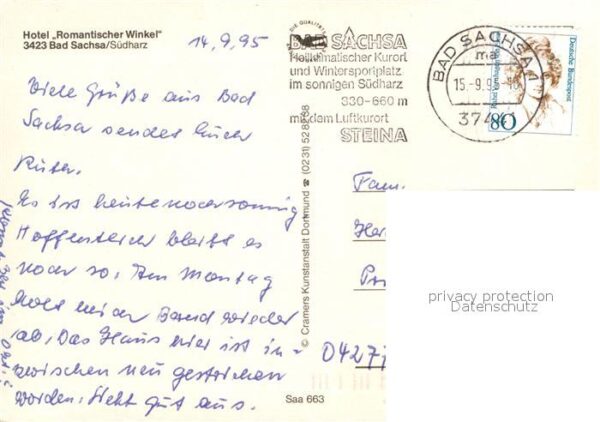 Hotel „Romantischer Winkel"
3423 Bad Sachsa/Südharz
14.9.95
Viele Grüße aus Bad
Sachsa sendet Euch
Es ist heute noch sonnig
Hoffentlich bleibt es
noch so. Am Montag
holt mich Bernd wieder
ab. Das Haus hier ist in-
zwischen neu gestrichen
worden. Sieht gut aus.
© Cramers Kunstanstalt Dortmund ☎ (0231)
Saa 663
DIE
BAD SACHSA
Heilklimatischer Kurort
und Wintersportplatz
im sonnigen Südharz
330-660 m
mit dem Luftkurort
STEINA
BAD SACHSA 1
ma
15.-9.95
Deutsche Bundespost
80
Fam.
privacy protection
Datenschutz